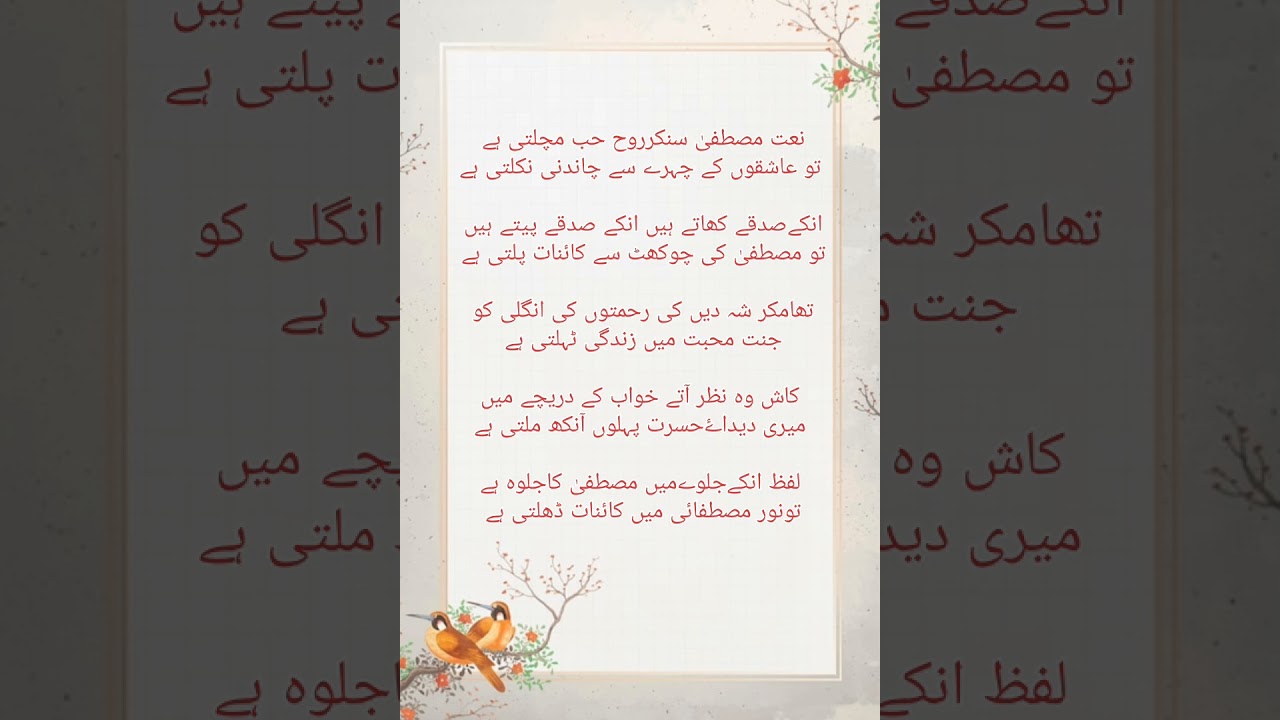 نعت مصطفیٰ سنکرروح حب مچلتی ہے
تو عاشقوں کے چہرے سے چاندنی نکلتی ہے
انکےصدقے کھاتے ہیں انکے صدقے پیتے ہیں
تو مصطفیٰ کی چوکھٹ سے کائنات پلتی ہے
تھامکر شہ دیں کی رحمتوں کی انگلی کو
جنت محبت میں زندگی ٹہلتی ہے
کاش وہ نظر آتے خواب کے دریچے میں
میری دیداۓحسرت پہلوں آنکھ ملتی ہے
لفظ انکےجلوےمیں مصطفیٰ کاجلوہ ہے
تونور مصطفائی میں کائنات ڈھلتی ہے